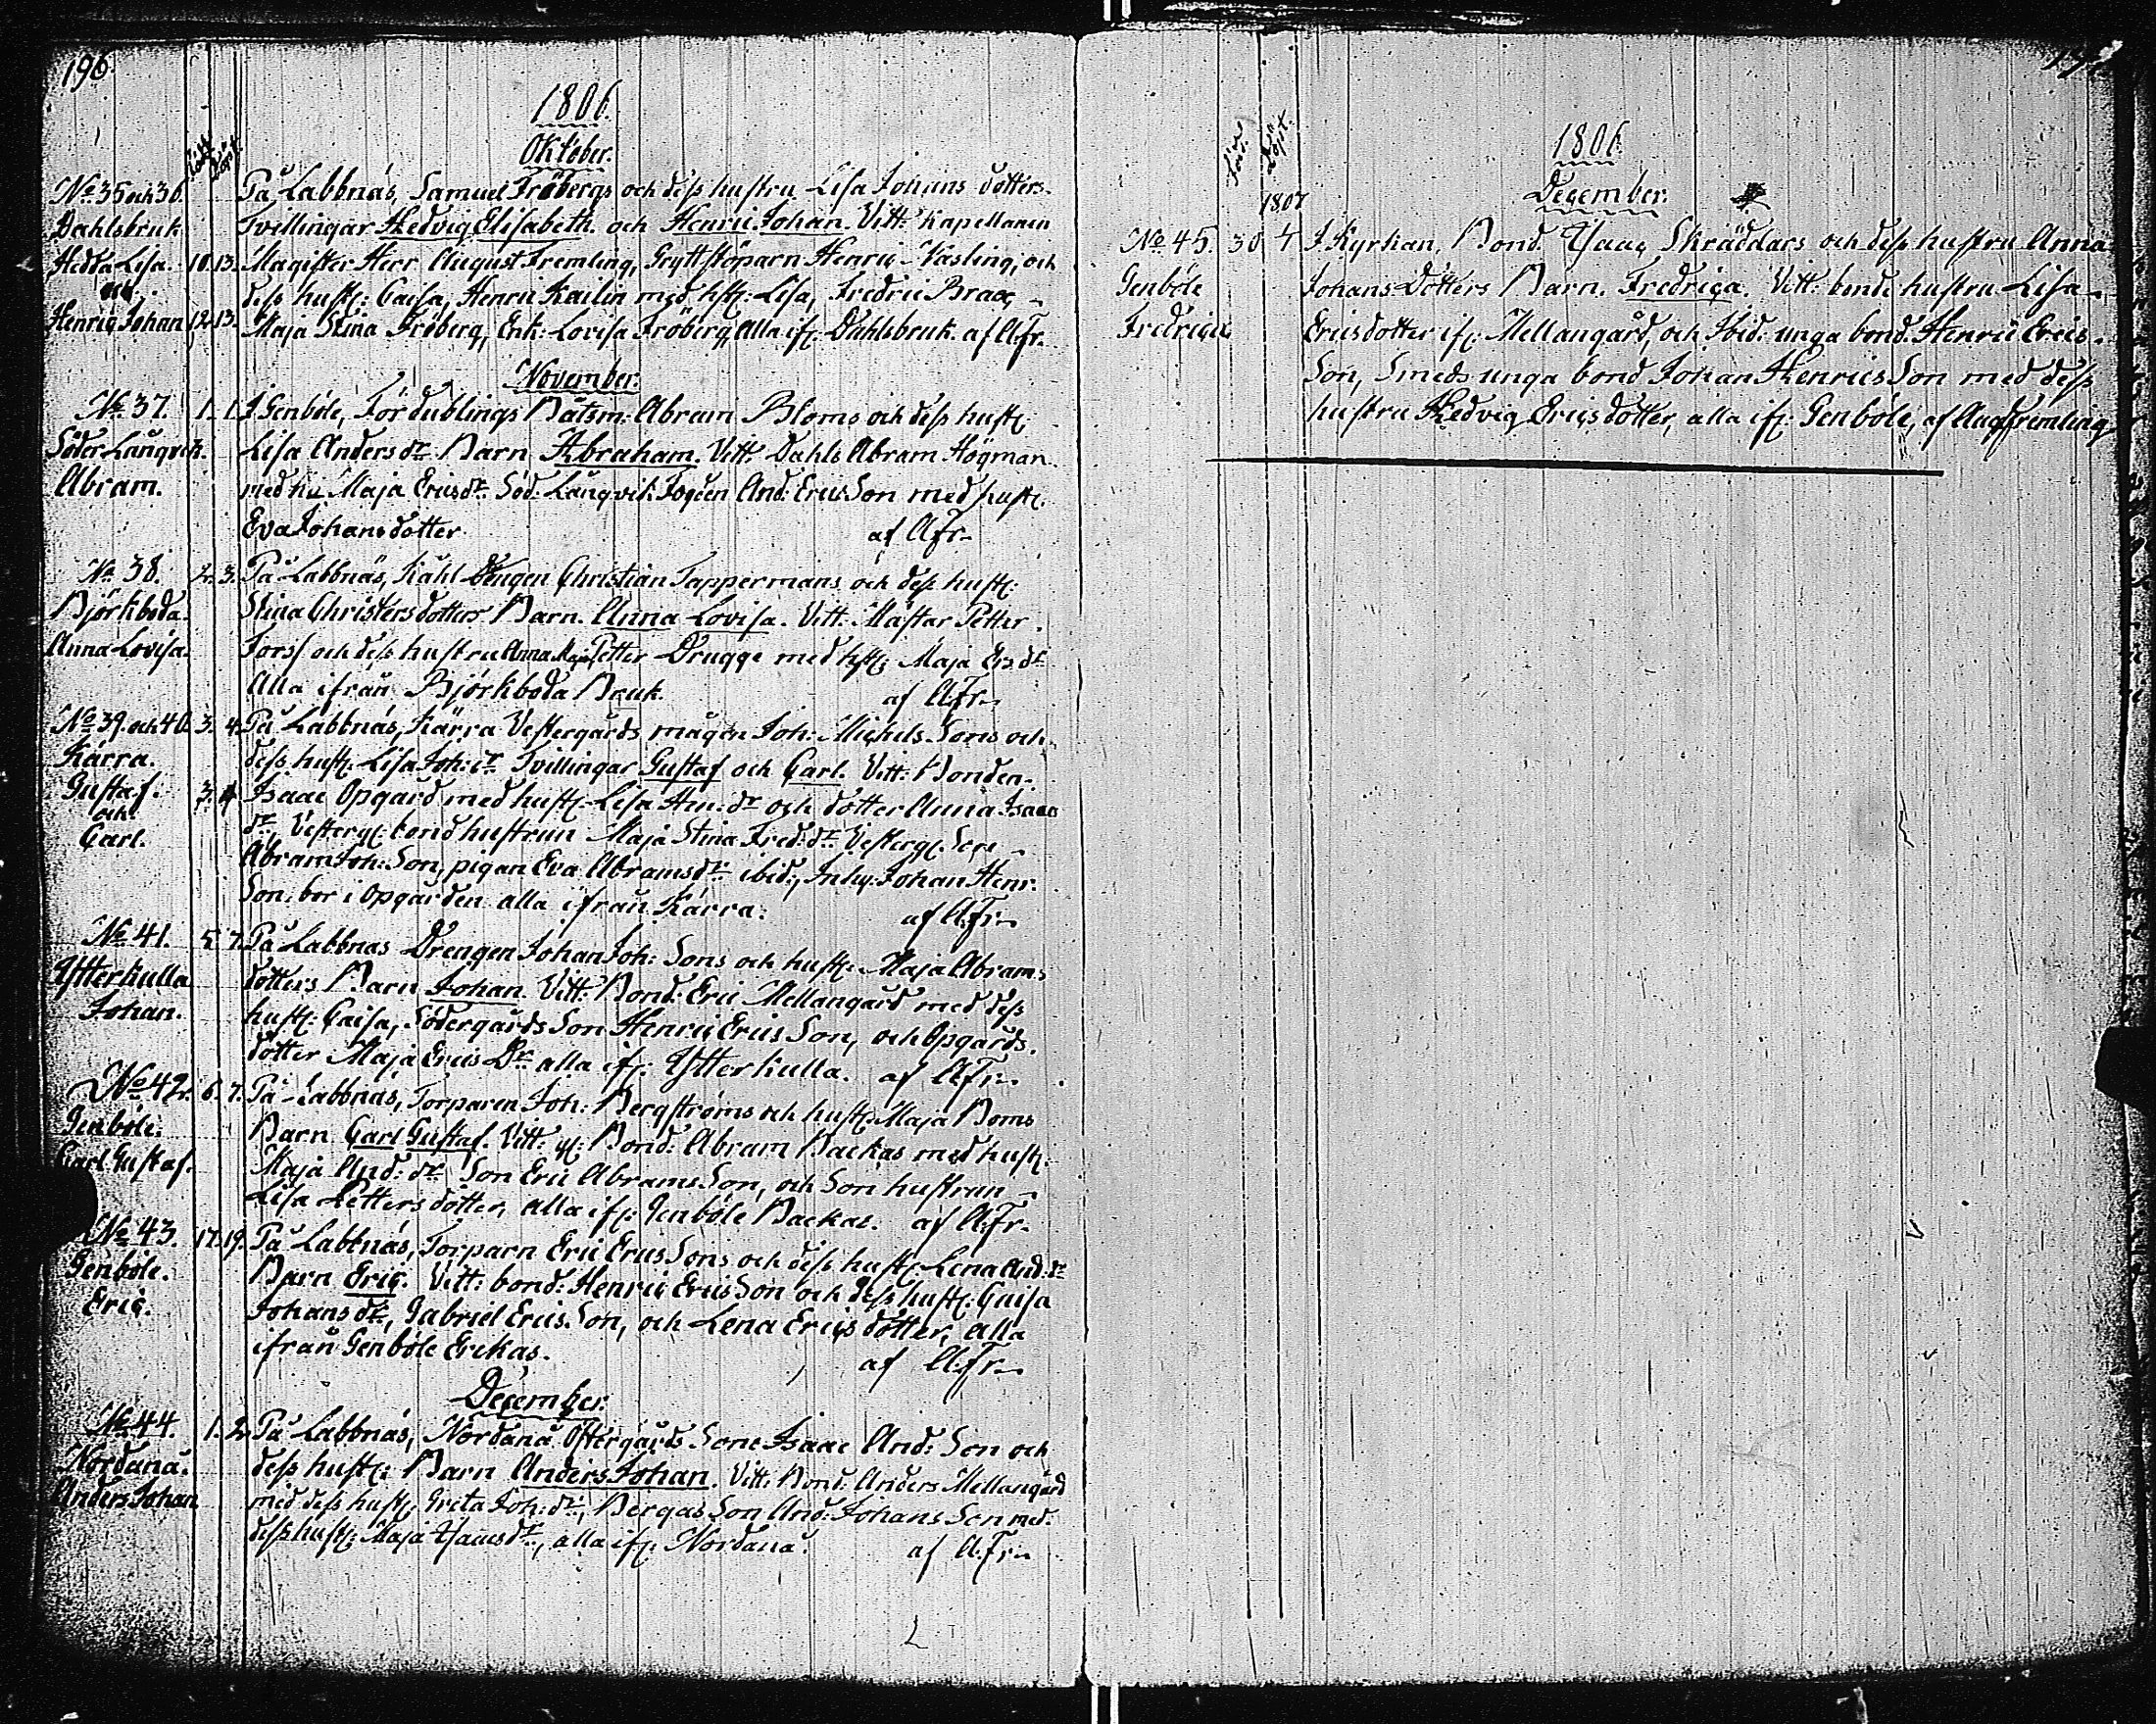 196.
1806.
Oktober.
Född Döpt.
No 35 och 36. På Labbnäs, Samuel Fröbergs och dess hustru Lisa Johans dotters
Dahlsbruk Tvillingar Hedvig Elisabeth och Henric Johan. Vitt: Kapellanen
Hedda Lisa. 10. 13. Magister Herr August Fremling, Gryttstöparn Henric Vasling, och
och dess hust: Caisa, Henric Kailin med hst: Lisa, Fredric Braax
Henric Johan 12. 13. Maja Stina Fröberg, Enk: Lovisa Fröberg, Alla ifr: Dahlsbruk. af A.Fr.
November.
No 37. 1. 1. I Genböle, För dublings Båtsm: Abram Bloms och dess hustr:
Söder Långvik. Lisa Anders dr Barn Abraham. Vitt: Dahls Abram Högman
Abram. med hu Maja Ericsdr Söd: Långvik: And: Erics Son med hustr.
Eva Johansdotter af A Fr.
No 38. 2. 3. På Labbnäs, Kåhl Drengen Christian Tappermans och dess hustr:
Björkboda. Stina Christersdotters Barn. Anna Lovisa. Vitt: Mästar Petter
Anna Lovisa. Forss och dess hustru Anna Maja Petter Drugge med hstr: Maja Ers dr
Alla ifrån Björkboda Bruk. af A.Fr.
No 39. och 40. 3. 4. På Labbnäs, Kärra Vestergårds mågen Joh: Michels Sons och
Kärra. dess hustr: Lisa Joh: dr Tvillingar Gustaf och Carl. Vitt: Bonden
Gustaf. 3. 4. Isaac Opgård med hustr: Lisa Hen: dr och dotter Anna Isaacs
och dr Vesterg: bond hustrun Maja Stina Fred: dr Vesterg: Son
Carl. Abram Joh: Son, pigan Eva Abramsdr ibid:, Inhy: Johan Henr:
Son, bor i Opgården alla ifrån Kärra: af A.Fr.
No 41. 5. 7. På Labbnäs Drengen Johan Joh: Sons och hustr: Maja Abrams
Ytterkulla dotters Barn Johan. Vitt: Bond: Eric Mellangård med dess
Johan. hustr: Caisa, Södergårds Son Henric Erics Son, och Opgårds
dotter Maja Erics Dr alla ifr: Ytterkulla. af A.Fr.
No 42. 6. 7. På Labbnäs, Torparen Joh: Bergströms och hustr: Maja Boms
Genböle. Barn Carl Gustaf. Vitt: gl: Bond: Abram Backas med hustr:
Carl Gustaf. Maja And: dr Son Eric Abrams Son, och Son hustrun
Lisa Petters dotter, alla ifr: Genböle Backas. af A.Fr.
No 43. 17. 19. På Labbnäs, Torparn Eric Erics Sons och dess hustr: Lena And: dr
Genböle. Barn Eric. Vitt: bond: Henric Erics Son och dess hustr: Caisa
Eric. Johans dr, Gabriel Erics Son, och Lena Erics dotter, alla
ifrån Genböle Erikas. af A.Fr.
December.
No 44. 1. 2. På Labbnäs, Nordanå Östergårds Sone Isaac And: Son och
Nordanå. dess hustr: Barn Anders Johan. Vitt: Bond: Anders Mellangård
Anders Johan med dess hustr: Greta Joh: dr, Bergas Son And: Johans Son med
dess hustr: Maja Isaacsdr, alla ifr: Nordanå. af A.Fr.
1806.
December.
Född. Döpt.
1807
No 45. 30 4 I Kyrkan, Bond: Isaac Skräddars och dess hustru Anna
Genböle Johans Dotters Barn. Fredrica. Vitt: bonde hustru Lisa
Fredrica Ericsdotter ifr: Mellangård, och Ibid: unga bond: Henric Erics
Son, Smeds unga bond Johan Henrics Son med dess
hustru Hedvig Ericsdotter, alla ifr: Genböle, af Aug Fremling